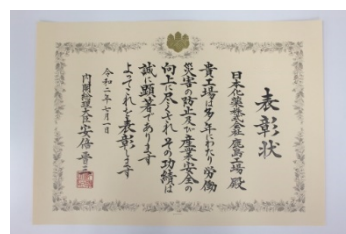 表彰状
日本化薬株式会社 鹿島工場 殿
貴工場は多年にわたり労働
災害の防止及び産業安全の
向上に尽くされその功績は
誠に顕著であります
よってこれを表彰します
令和二年七月一日
内閣総理大臣 安倍晋三